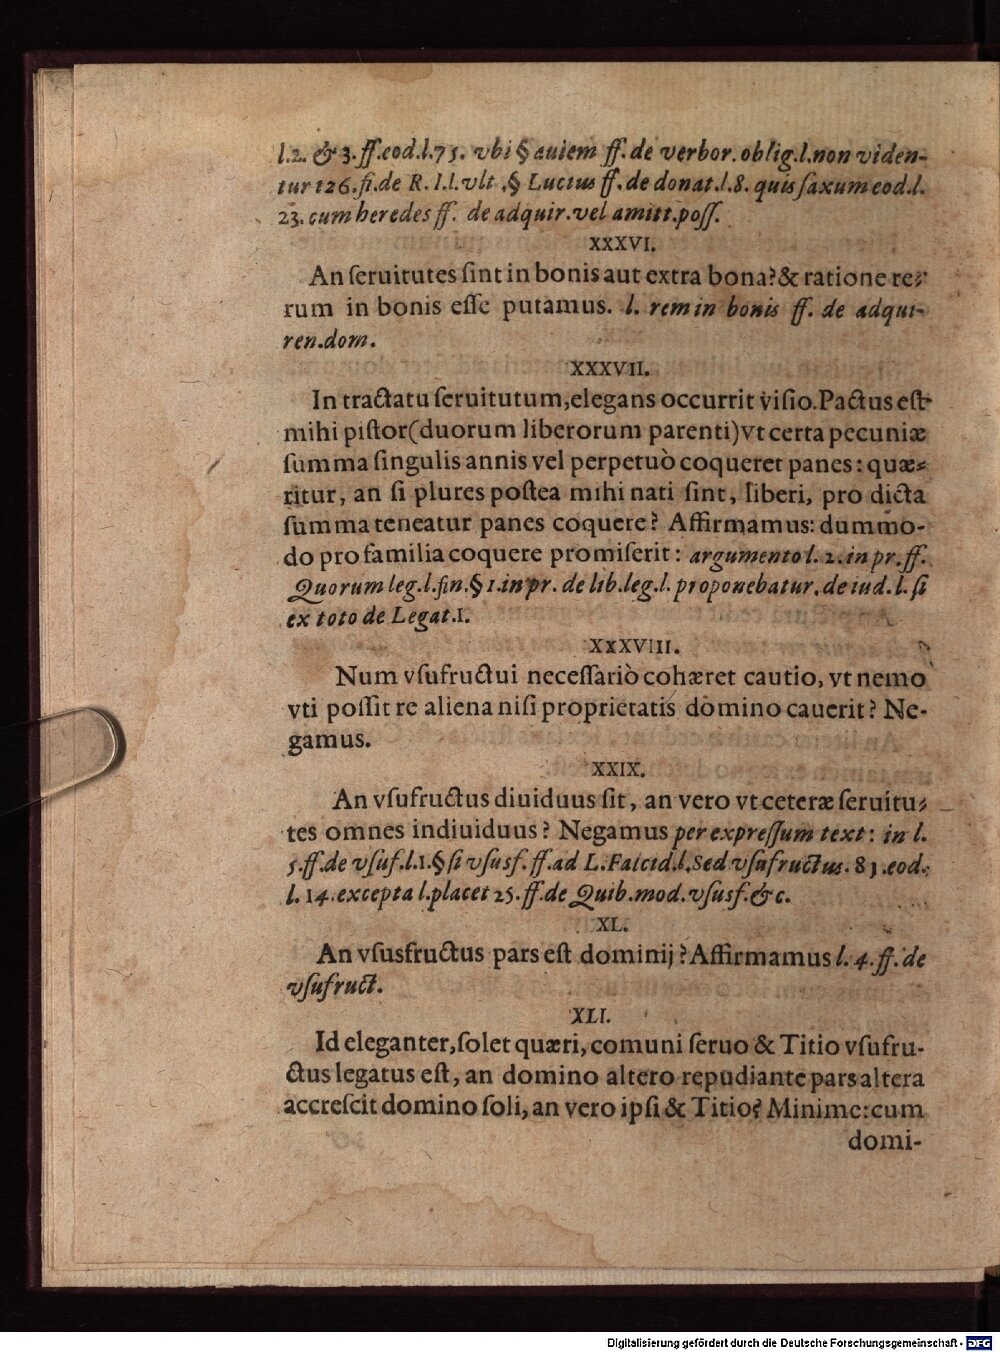 l.2. & 3. ff.eod.l.75. vbi § autem ff. de verbor. oblig.l.non viden-
tur 126. fi.de R. I.l.vlt .§ Lucius ff. de donat.l.8. quis ſaxum eod.l.
23. cum heredes ff. de adquir.vel amitt.poſſ.
XXXVI.
An ſeruitutes ſint in bonis aut extra bona?& ratione re-
rum in bonis eſſe putamus. l. rem in bonis ff. de adqui-
ren.dom.
XXXVII.
In tractatu ſeruitutum,elegans occurrit viſio.Pactus eſt
mihi piſtor(duorum liberorum parenti)vt certa pecuniæ
ſumma ſingulis annis vel perpetuò coqueret panes: quæ-
ritur, an ſi plures poſtea mihi nati ſint, liberi, pro dicta
ſumma teneatur panes coquere? Affirmamus: dummo-
do pro familia coquere promiſerit: argumento l. 2. in pr. ff.
Quorum leg.l.fin.§ 1.in pr. de lib.leg.l. proponebatur. de iud. l. ſi
ex toto de Legat.1.
XXXVIII.
Num vſufructui neceſſariò cohæret cautio, vt nemo
vti poſſit re aliena niſi proprietatis domino cauerit? Ne-
gamus.
XXIX.
An vſufructus diuiduus ſit, an vero vt ceteræ ſeruitu-
tes omnes indiuiduus? Negamus per expreſſum text: in l.
5.ff.de vſuf.l.1.§ ſi vſusf. ff.ad L.Falcid.l.Sed vſufructus. 83.eod.
l.14.excepta l.placet 25.ff.de Quib.mod.vſusf.&c.
XL.
An vſusfructus pars eſt dominij?Affirmamus l. 4. ff. de
vſufruct.
XLI.
Id eleganter,ſolet quæri,comuni ſeruo & Titio vſufru-
ctus legatus eſt, an domino altero repudiante pars altera
accreſcit domino ſoli, an vero ipſi & Titio? Minime:cum
domi-
Digitalisierung gefördert durch die Deutsche Forschungsgemeinschaft - DFG